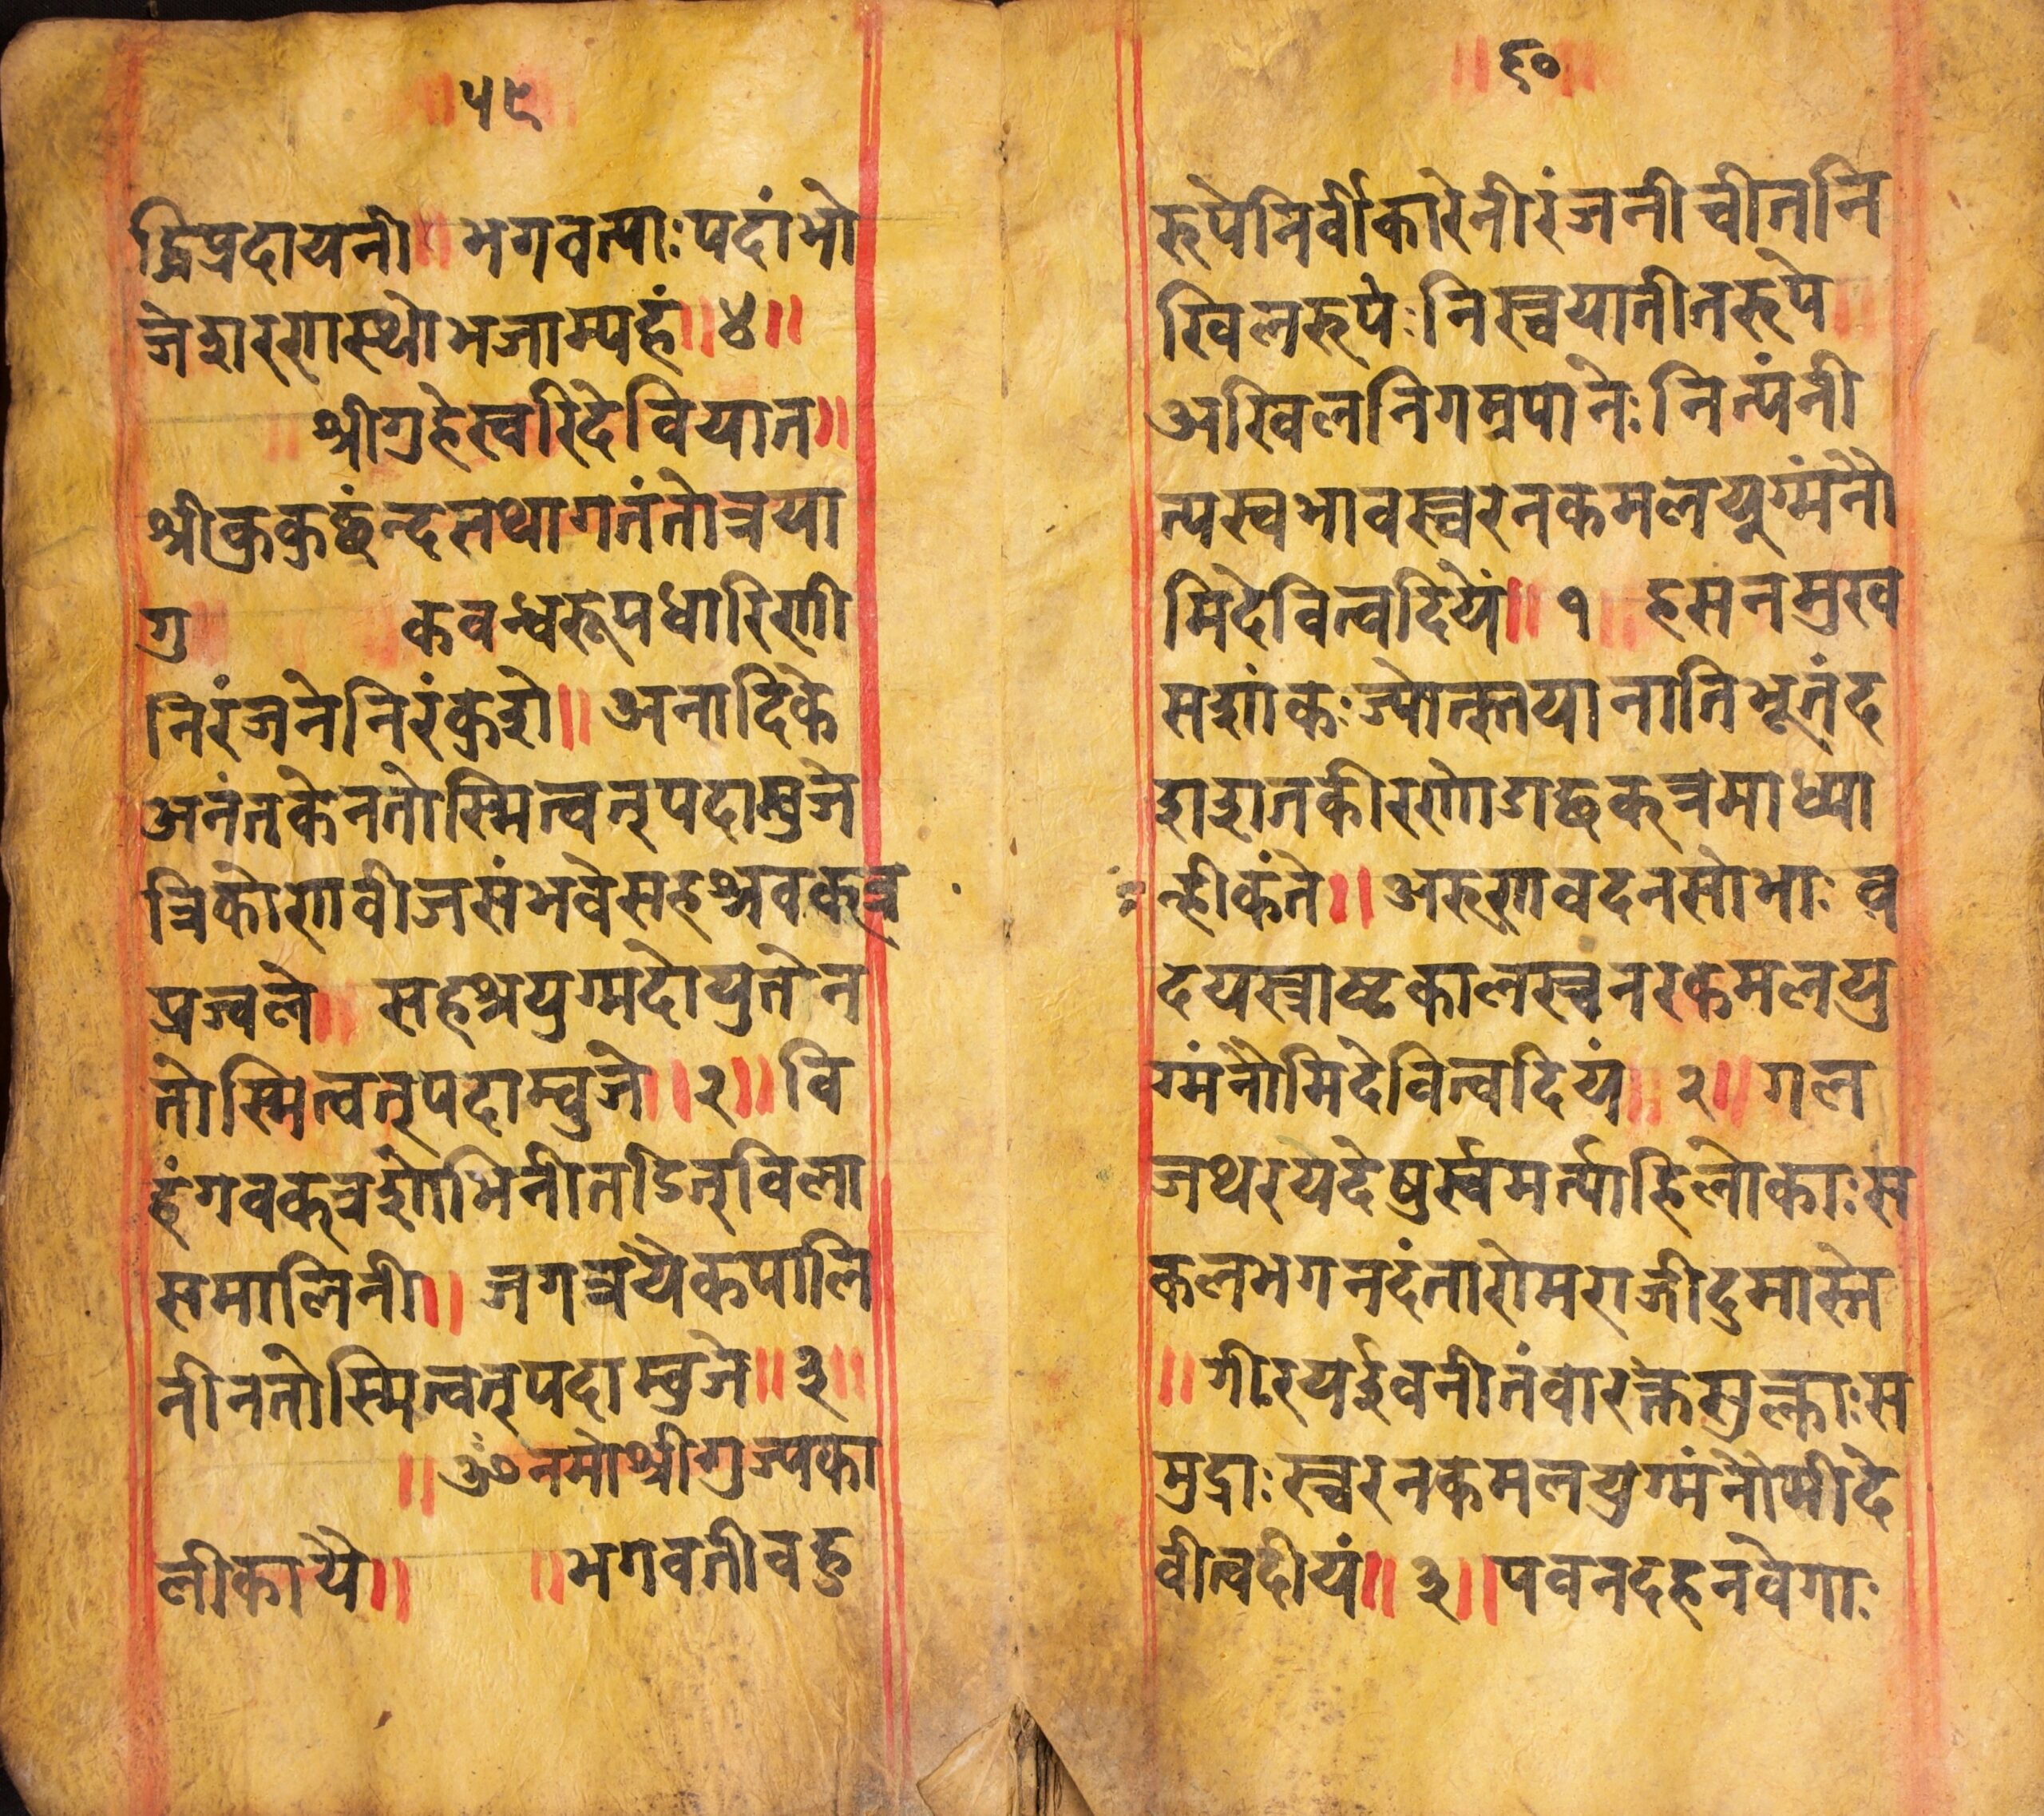 ५९
द्धिप्रदायनी॥ भगवत्याः पदांभो
जेशरणास्थोभजाम्यहं॥४॥
श्रीगुहेस्वरिदेवियात॥
श्रीक्रक्रछंन्दतथागतंतोत्रया
गु कवन्धरूपधारिणी
निरंजनेनिरंकुशे॥ अनादिके
अनंतकेनतोस्मित्वत्पदाम्बुजे
त्रिकोणवीजसंभवेसहश्रवक्त्र
प्रज्वले॥ सहश्रयुग्मदोयुतेन
तोस्मित्वत्पदाम्बुजे॥२॥ वि
हंगवक्त्रशोभिनीतडित्विला
समालिनी॥ जगत्रयैकपालि
नीनतोस्मित्वत्पदाम्बुजे॥३॥
॥ॐनमोश्रीगुज्यका
लीकायै॥ ॥भगवतीवहु
६०
रुपेनिर्वीकारेनीरंजनीचीतनि
खिलरुपेःनिस्त्वयातीतरुपे॥
अखिलनिगम्रपानेःनित्यंनी
त्यस्वभावस्त्वरनकमलयुग्मंनौ
मिदेवित्वदियं॥१॥ हसनमुख
सशांकःज्योत्स्नयानातिभूतंद
शशतकीरणोडाछकत्रमाध्या
न्हीकंते॥ अरुणवदनसोभाः व
दयस्त्राष्टकालस्त्वंनरकमलयु
ग्मंनौमिदेवित्वदियं॥२॥ गल
जथरयदेषुर्स्वमर्त्याहिलोकाःस
कलभगनदंतारोमराजीदुमास्ते
॥गीरयर्इवनीतंवारक्तसुल्काःस
मुद्राःस्त्वरनकमलयुग्मंनौमीदे
वीत्वदीयं॥३॥पवनदहनवेगाः